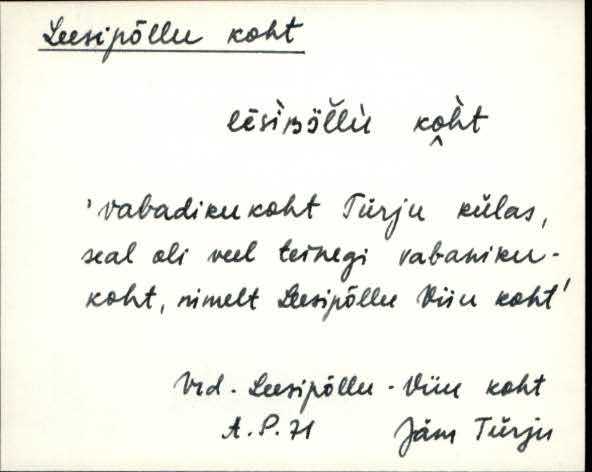 Leesipõllu koht
lēsìʙɜ̈l̆l̀ù kò̭ht
'vabadiku koht Türju külas,
seal oli veel teinegi vabaniku-
koht, nimelt Leesipõllu Viiu koht'
Vrd. Leesipõllu-Viiu koht
A.P.71 Jäm Türju